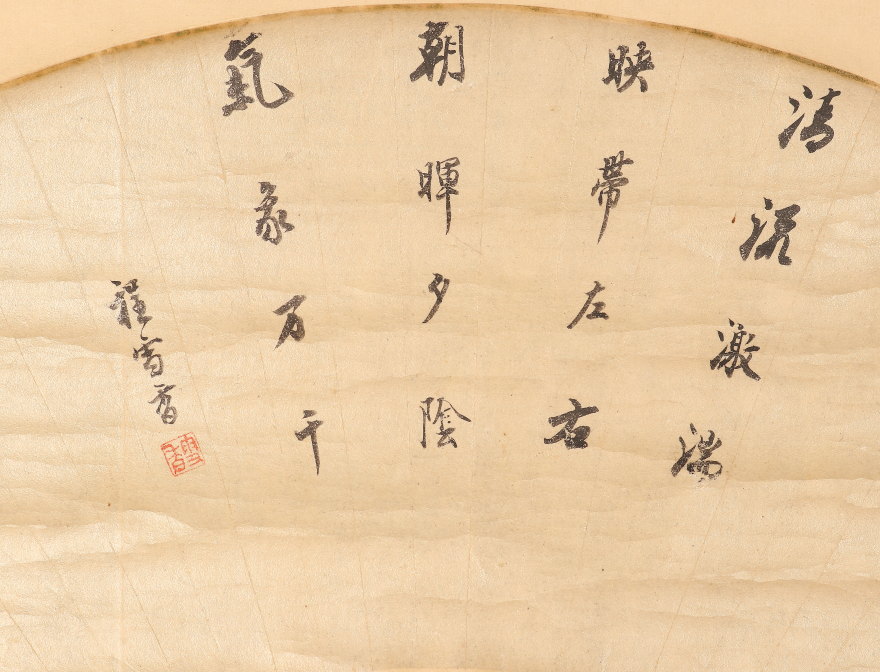 清流激湍
映帶左右
朝暉夕陰
氣象万千
程雪香